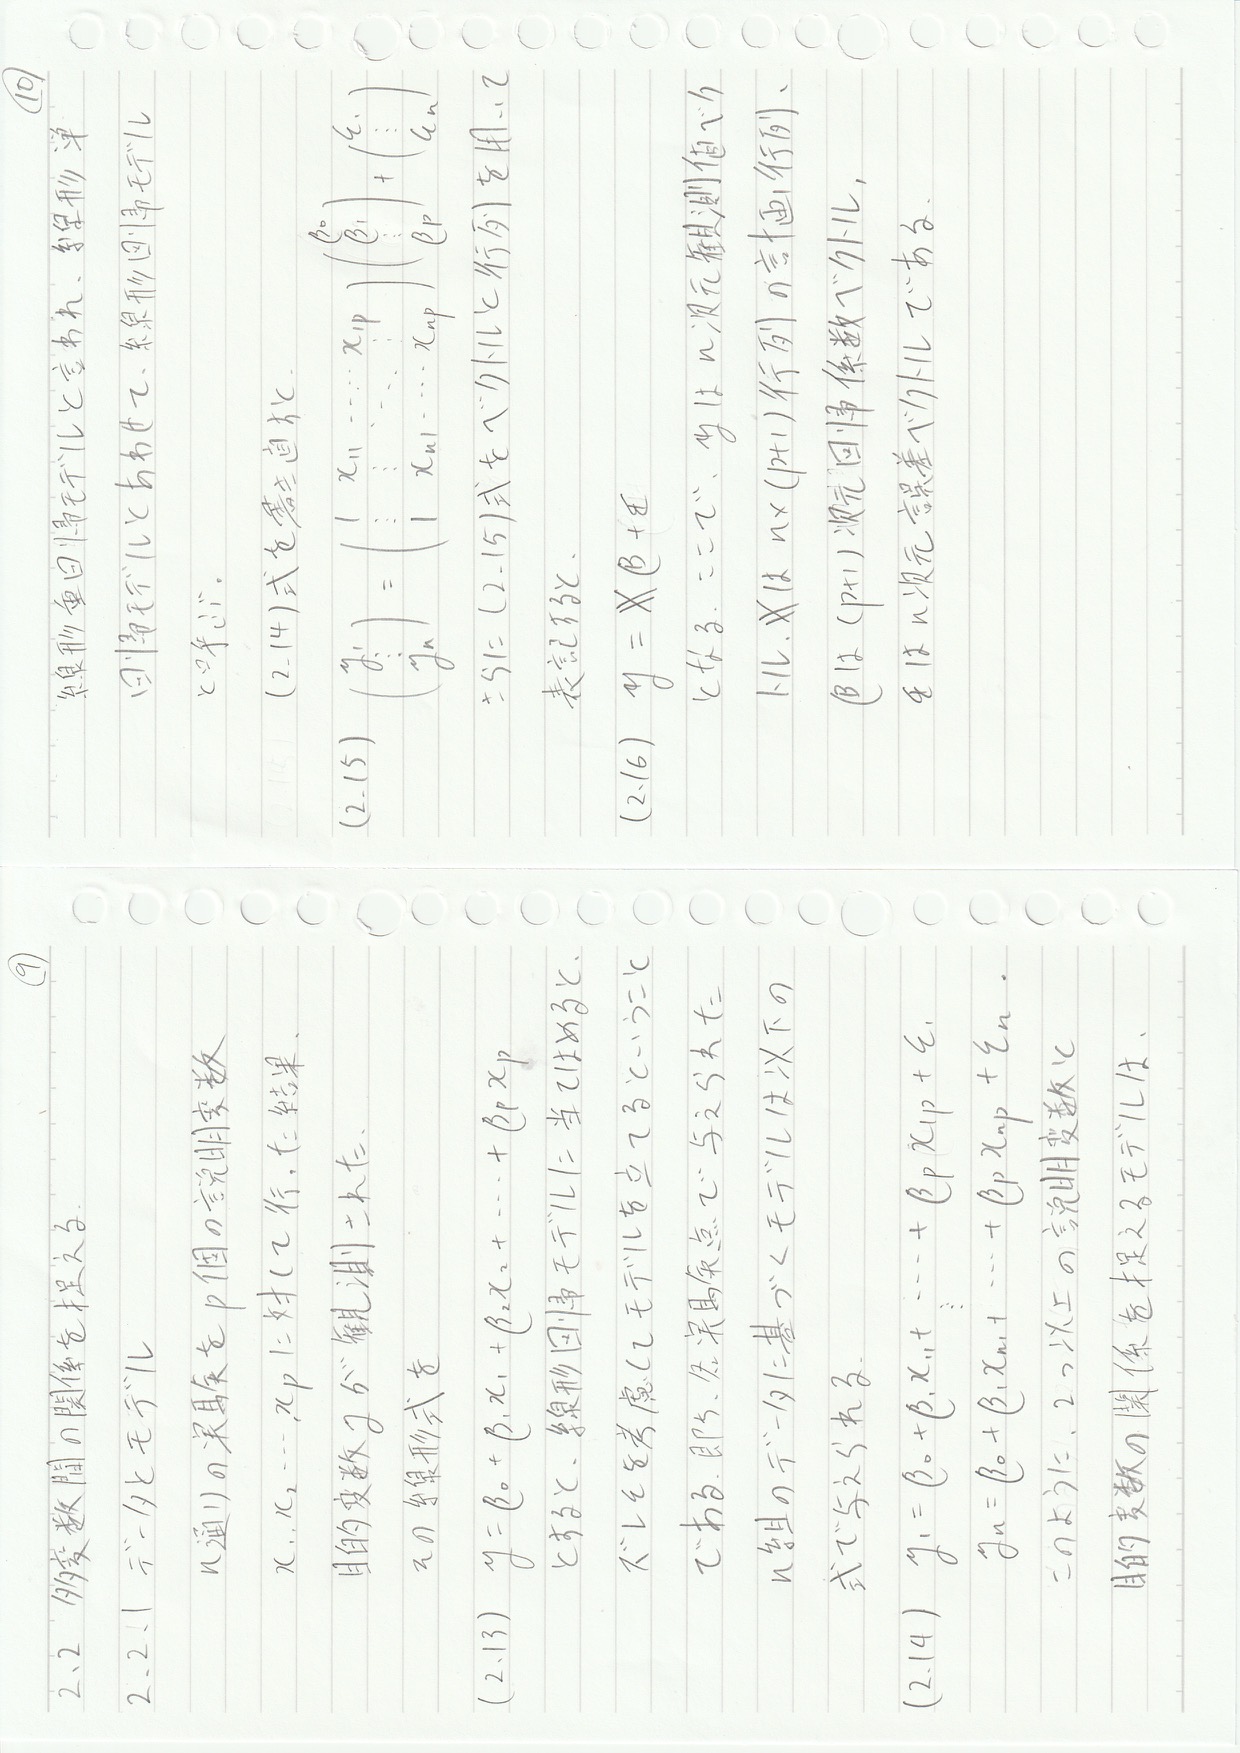 ⑨
2.2 多変数間の関係を捉える.
2.2.1 データとモデル
n通りの実験をp個の説明変数
x₁, x₂ …, xp に対して行った結果、
目的変数yが観測された.
その線形式を
(2.13) y = β₀ + β₁x₁ + β₂x₂ + … + βp xp
とすると、線形回帰モデルに当てはめると、
ズレεを考慮してモデルを立てるということ
である. 即ち、各実験点で与えられた
n組のデータに基づくモデルは以下の
式で与えられる.
(2.14) y₁ = β₀ + β₁x₁₁ + … + βp x₁p + ε₁
⋮
yn = β₀ + β₁xn₁ + … + βp xnp + εn .
このように、2つ以上の説明変数と
目的変数の関係を捉えるモデルは、
⑩
線形重回帰モデルと言われ、線形単
回帰モデルとあわせて、線形回帰モデル
と呼ぶ.
(2.14)式を書き直すと、
(2.15) (y₁ ⋮ yn) = (1 x₁₁ … x₁p ⋮ ⋮ ⋱ ⋮ 1 xn₁ … xnp) (β₀ β₁ ⋮ βp) + (ε₁ ⋮ εn)
さらに(2.15)式をベクトルと行列を用いて
表記すると、
(2.16) y = Xβ + ε
となる. ここで、yはn次元観測値ベク
トル、Xはn×(p+1)行列の計画行列、
βは(p+1)次元回帰係数ベクトル,
εはn次元誤差ベクトルである.